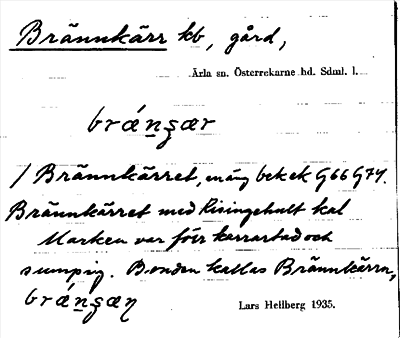 Brännkärr kb, gård,
Ärla sn. Österrekarne hd. Sdml. l.
brä́nçær
1 Brännkärret, mäng bek ek G66 G74.
Brännkärret med Risingehult kal
Marken var förr kärrartad och
sumpig. Bonden kallas Brännkärrn,
Lars Hellberg 1935.